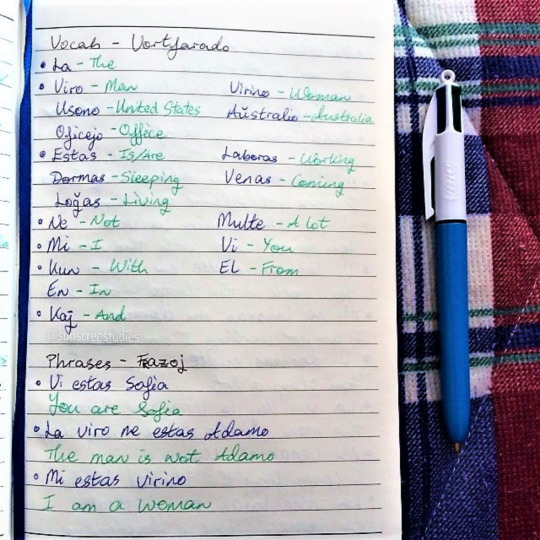 Vocab - Vortfarado
• La - The
• Viro - Man Virino - Woman
Usono - United States Aŭstralio - Australia
Oficejo - Office
• Estas - Is/Are Laboras - Working
Dormas - Sleeping Venas - Coming
Loĝas - Living
• Ne - Not Multe - A lot
• Mi - I Vi - You
• Kun - With El - From
En - In
• Kaj - And
Phrases - Frazoj
• Vi estas Sofia
You are Sofia
• La viro ne estas Adamo
The man is not Adamo
• Mi estas virino
I am a woman
BIC